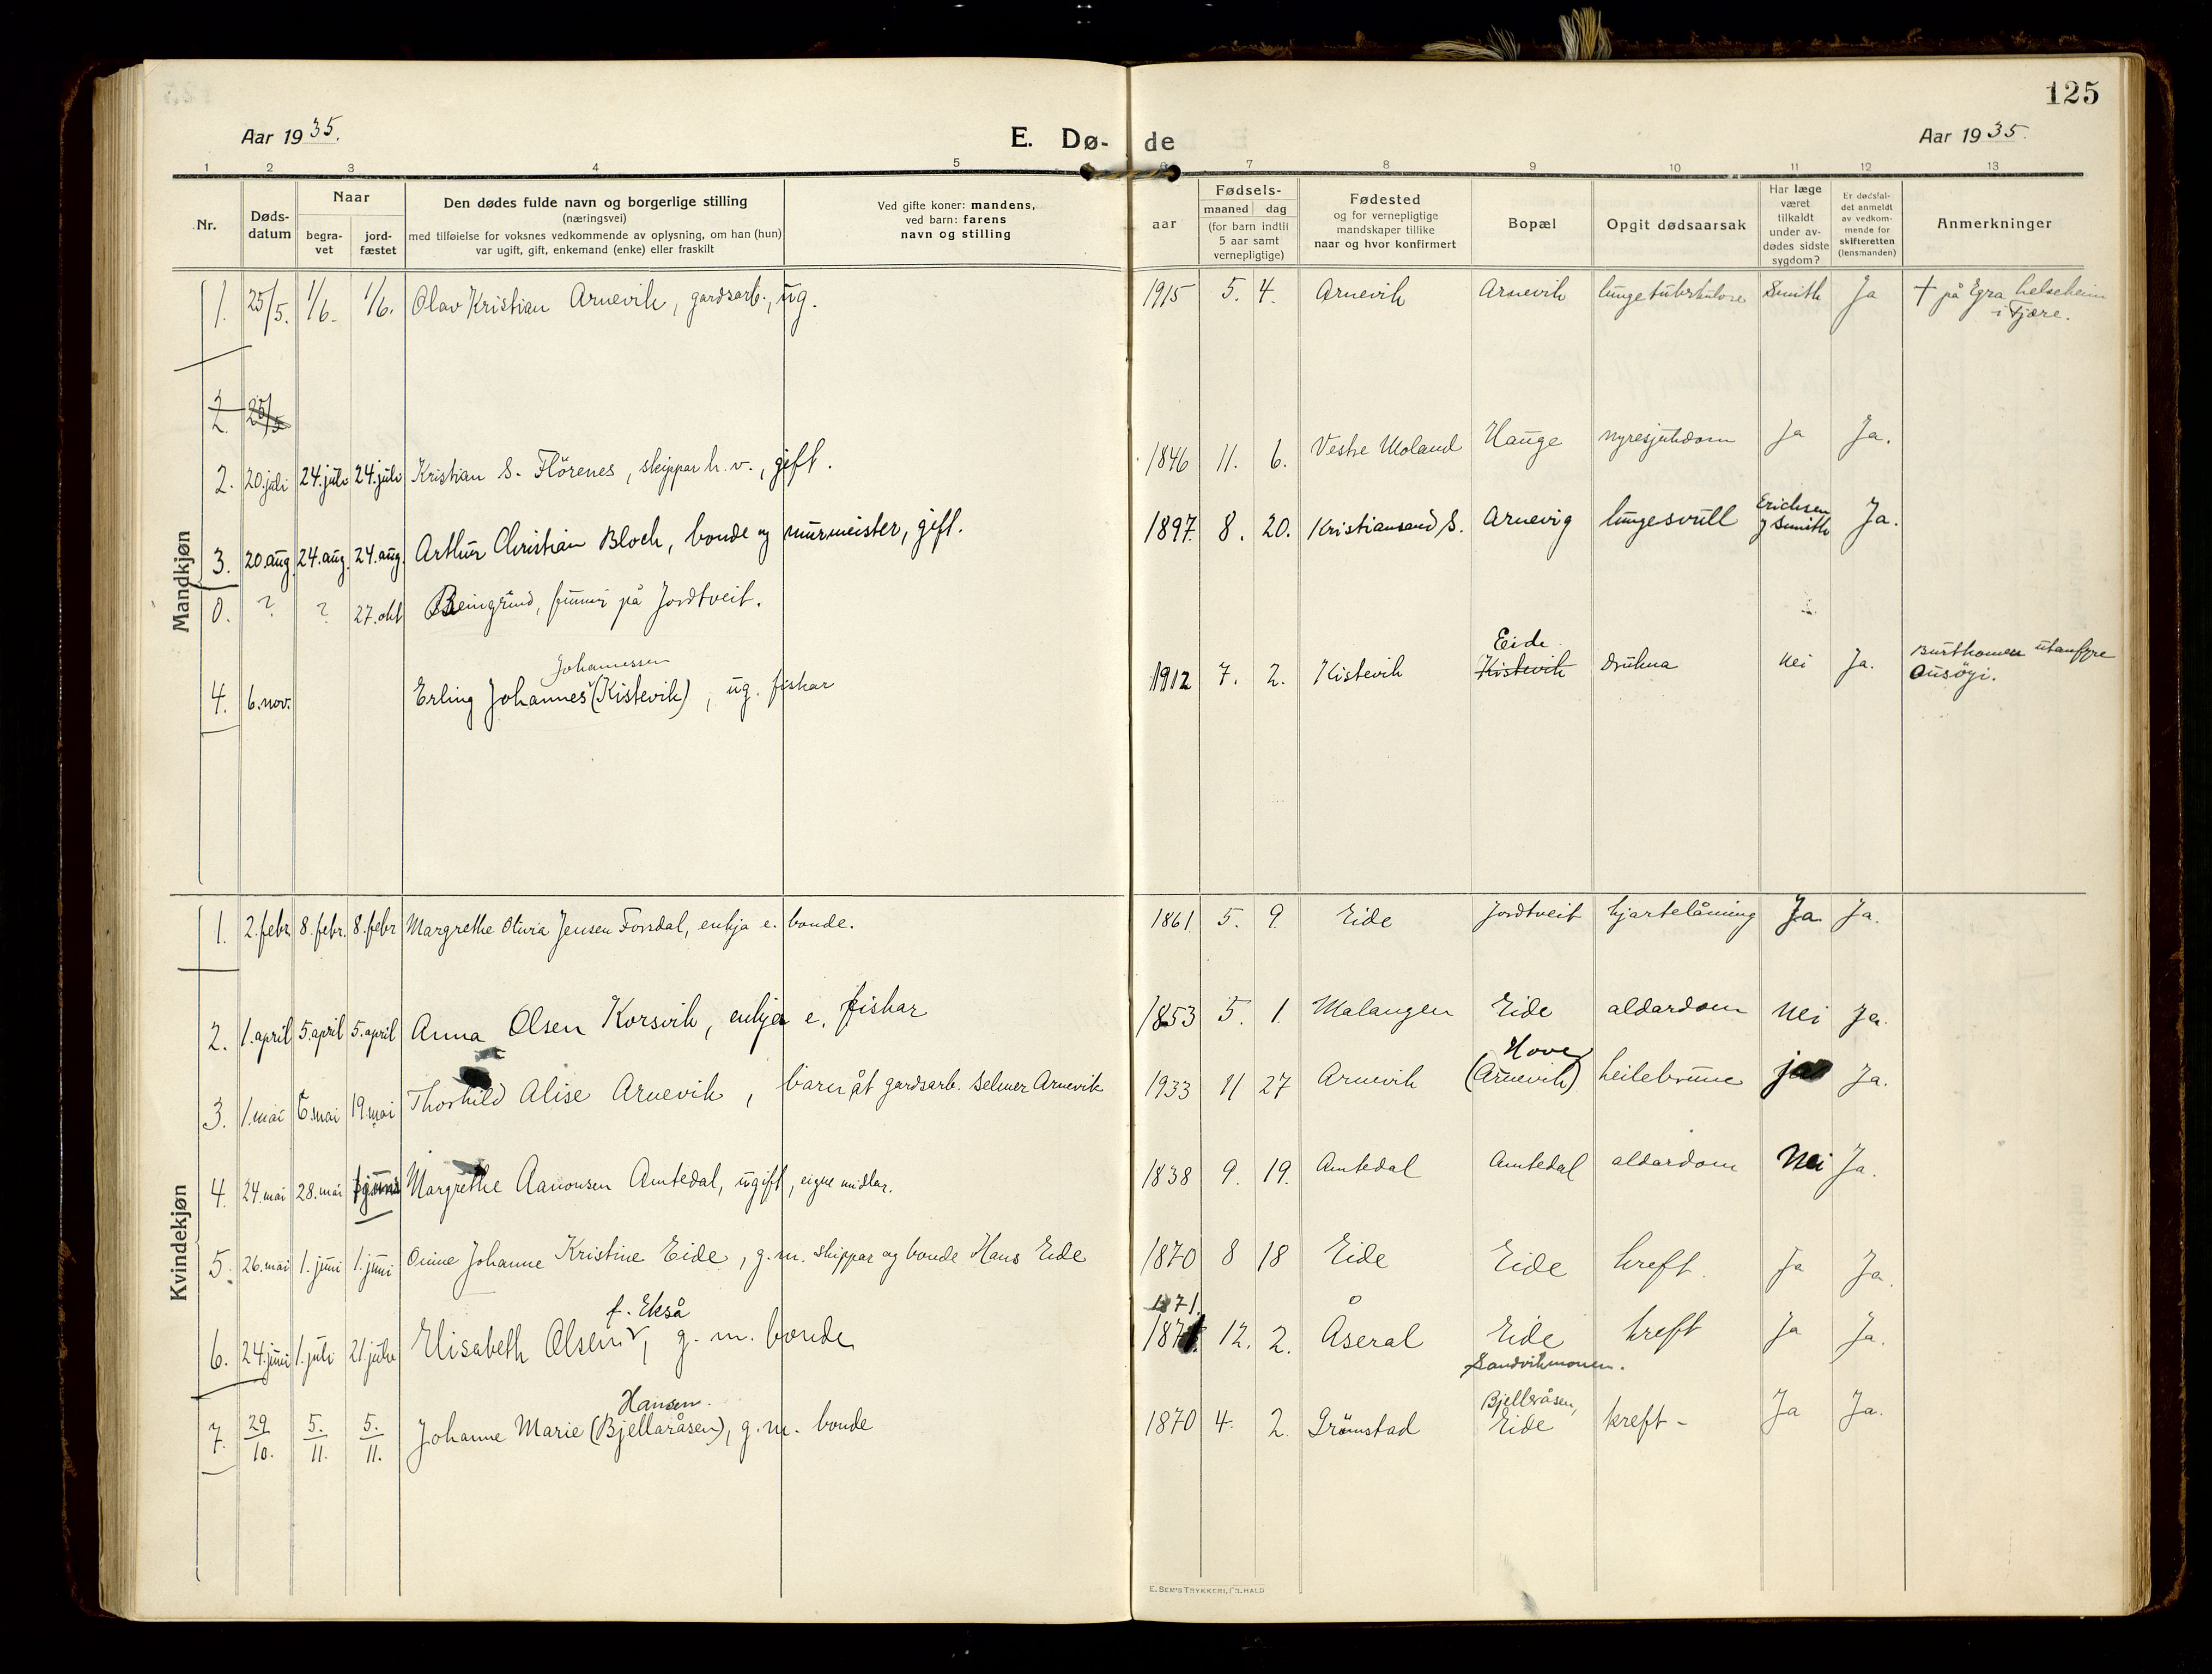 125
Aar 1935.
E. Dø- de
Aar 1935.
1 2 3 4 5 6 7 8 9 10 11 12 13
Nr.
Døds-
datum
Naar
begra-
vet
jord-
fæstet
Den dødes fulde navn og borgerlige stilling
(næringsvei)
med tilføielse for voksnes vedkommende av oplysning, om han (hun)
var ugift, gift, enkemand (enke) eller fraskilt
Ved gifte koner: mandens,
ved barn: farens
navn og stilling
aar
Fødsels-
maaned dag
(for barn indtil
5 aar samt
vernepligtige)
Fødested
og for vernepligtige
mandskaper tillike
naar og hvor konfirmert
Bopæl
Opgit dødsaarsak
Har læge
været
tilkaldt
under av-
dødes sidste
sygdom?
Er dødsfal-
det anmeldt
av vedkom-
mende for
skifteretten
(lensmanden)
Anmerkninger
Mandkjøn
1. 25/5. 1/6. 1/6. Olav Kristian Arnevik, gardsarb., ug. 1915 5. 4. Arnevik Arnevik lungetuberkulose Smith Ja † på Egra helseheim
i Fjære.
2. 25/5
2. 20. juli 24. juli 24. juli Kristian S. Flörenes, skippar h. v., gift. 1846 11. 6. Vestre Moland Hauge nyresjukdom Ja Ja.
3. 20. aug. 24. aug. 24. aug. Arthur Christian Bloch, bonde og murmeister, gift. 1897. 8. 20. Kristiansand S. Arnevig lungesvull Erichsen
og Smith Ja.
0. ? ? 27. okt Beingrind, funni på Jordtveit.
Johannessen
4. 6. nov. Erling Johannes (Kistevik), ug. fiskar 1912 7. 2. Kistevik Eide
Kistevik drukna Nei Ja. Burtkomen utanfyre
Ausøyi.
Kvindekjøn
1. 2. febr 8. febr. 8. febr Margrethe Olivia Jensen Forsdal, enkja e. bonde. 1861. 5. 9. Eide Jordtveit hjartelåming Ja Ja.
2. 1. april 5. april 5. april Anna Olsen Korsvik, enkja e. fiskar 1853 5. 1. Malangen Eide aldardom Nei Ja.
3. 1. mai 6. mai 19. mai Thorhild Alise Arnevik, barn åt gardsarb. Selmer Arnevik 1933 11 27 Arnevik Hove
(Arnevik) heilebrune ja Ja.
4. 24. mai 28. mai juni Margrethe Aanonsen Amtedal, ugift, eigne midlar. 1838 9. 19. Amtedal Amtedal aldardom Nei Ja.
5. 26. mai 1. juni 1. juni Onine Johanne Kristine Eide, g. m. skippar og bonde Hans Eide 1870 8 18 Eide Eide kreft. Ja Ja.
f. Ekså 1871.
6. 24. juni 1. juli 21. juli Elisabeth Olsen, g. m. bonde 1871. 12. 2. Åseral Eide kreft Ja Ja.
Sandvikmonen.
Hansen. Bjellaråsen,
7. 29/10. 5./11. 5./11. Johanne Marie (Bjellaråsen), g. m. bonde 1870 4. 2. Grimstad Eide kreft - Ja Ja.
E. SEM'S TRYKKERI, FR. HALD